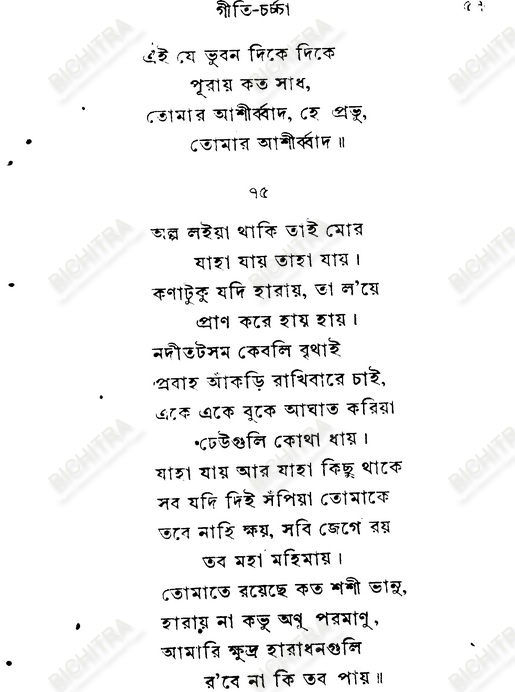 গীতি-চর্চ্চা
এই যে ভুবন দিকে দিকে
পূরায় কত সাধ,
তোমার আশীর্ব্বাদ, হে প্রভু,
তোমার আশীর্ব্বাদ ॥
৭৫
অল্প লইয়া থাকি তাই মোর
যাহা যায় তাহা যায়।
কণাটুকু যদি হারায়, তা ল'য়ে
প্রাণ করে হায় হায়।
নদীতটসম কেবলি বৃথাই
প্রবাহ আঁকড়ি রাখিবারে চাই,
একে একে বুকে আঘাত করিয়া
ঢেউগুলি কোথা ধায়।
যাহা যায় আর যাহা কিছু থাকে
সব যদি দিই সঁপিয়া তোমাকে
তবে নাহি ক্ষয়, সবি জেগে রয়
তব মহা মহিমায়।
তোমাতে রয়েছে কত শশী ভানু,
হারায় না কভু অণু পরমাণু,
আমারি ক্ষুদ্র হারাধনগুলি
র'বে না কি তব পায় ॥
BICHITRA
BICHITRA
BICHITRA
BICHITRA
BICHITRA
BICHITRA
BICHITRA
BICHITRA